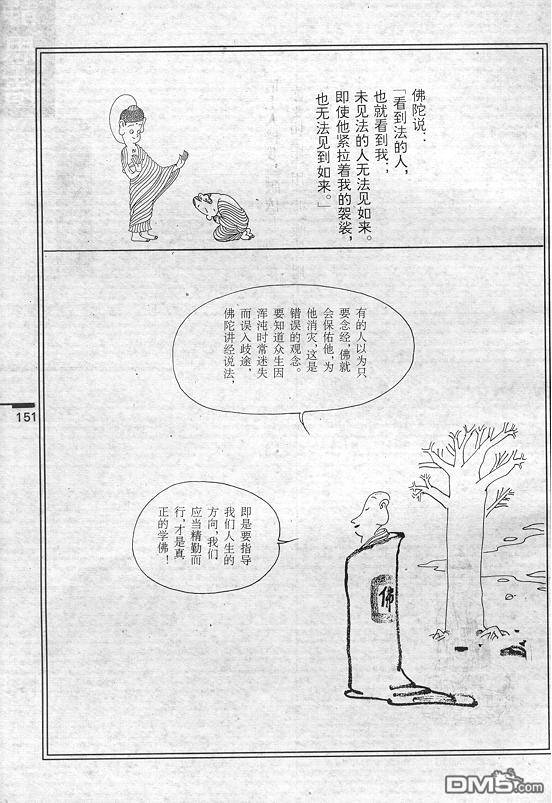 佛陀说：
「看到法的人，
也就看到我，
未见法的人无法见如来。
即使他紧拉着我的袈裟，
也无法见到如来。」
有的人以为只
要念经，佛就
会保佑他，为
他消灾，这是
错误的观念。
要知道众生因
浑沌时常迷失
而误入歧途，
佛陀讲经说法，
151
即是要指导
我们人生的
方向，我们
应当精勤而
行，才是真
正的学佛！
佛
DM5.com